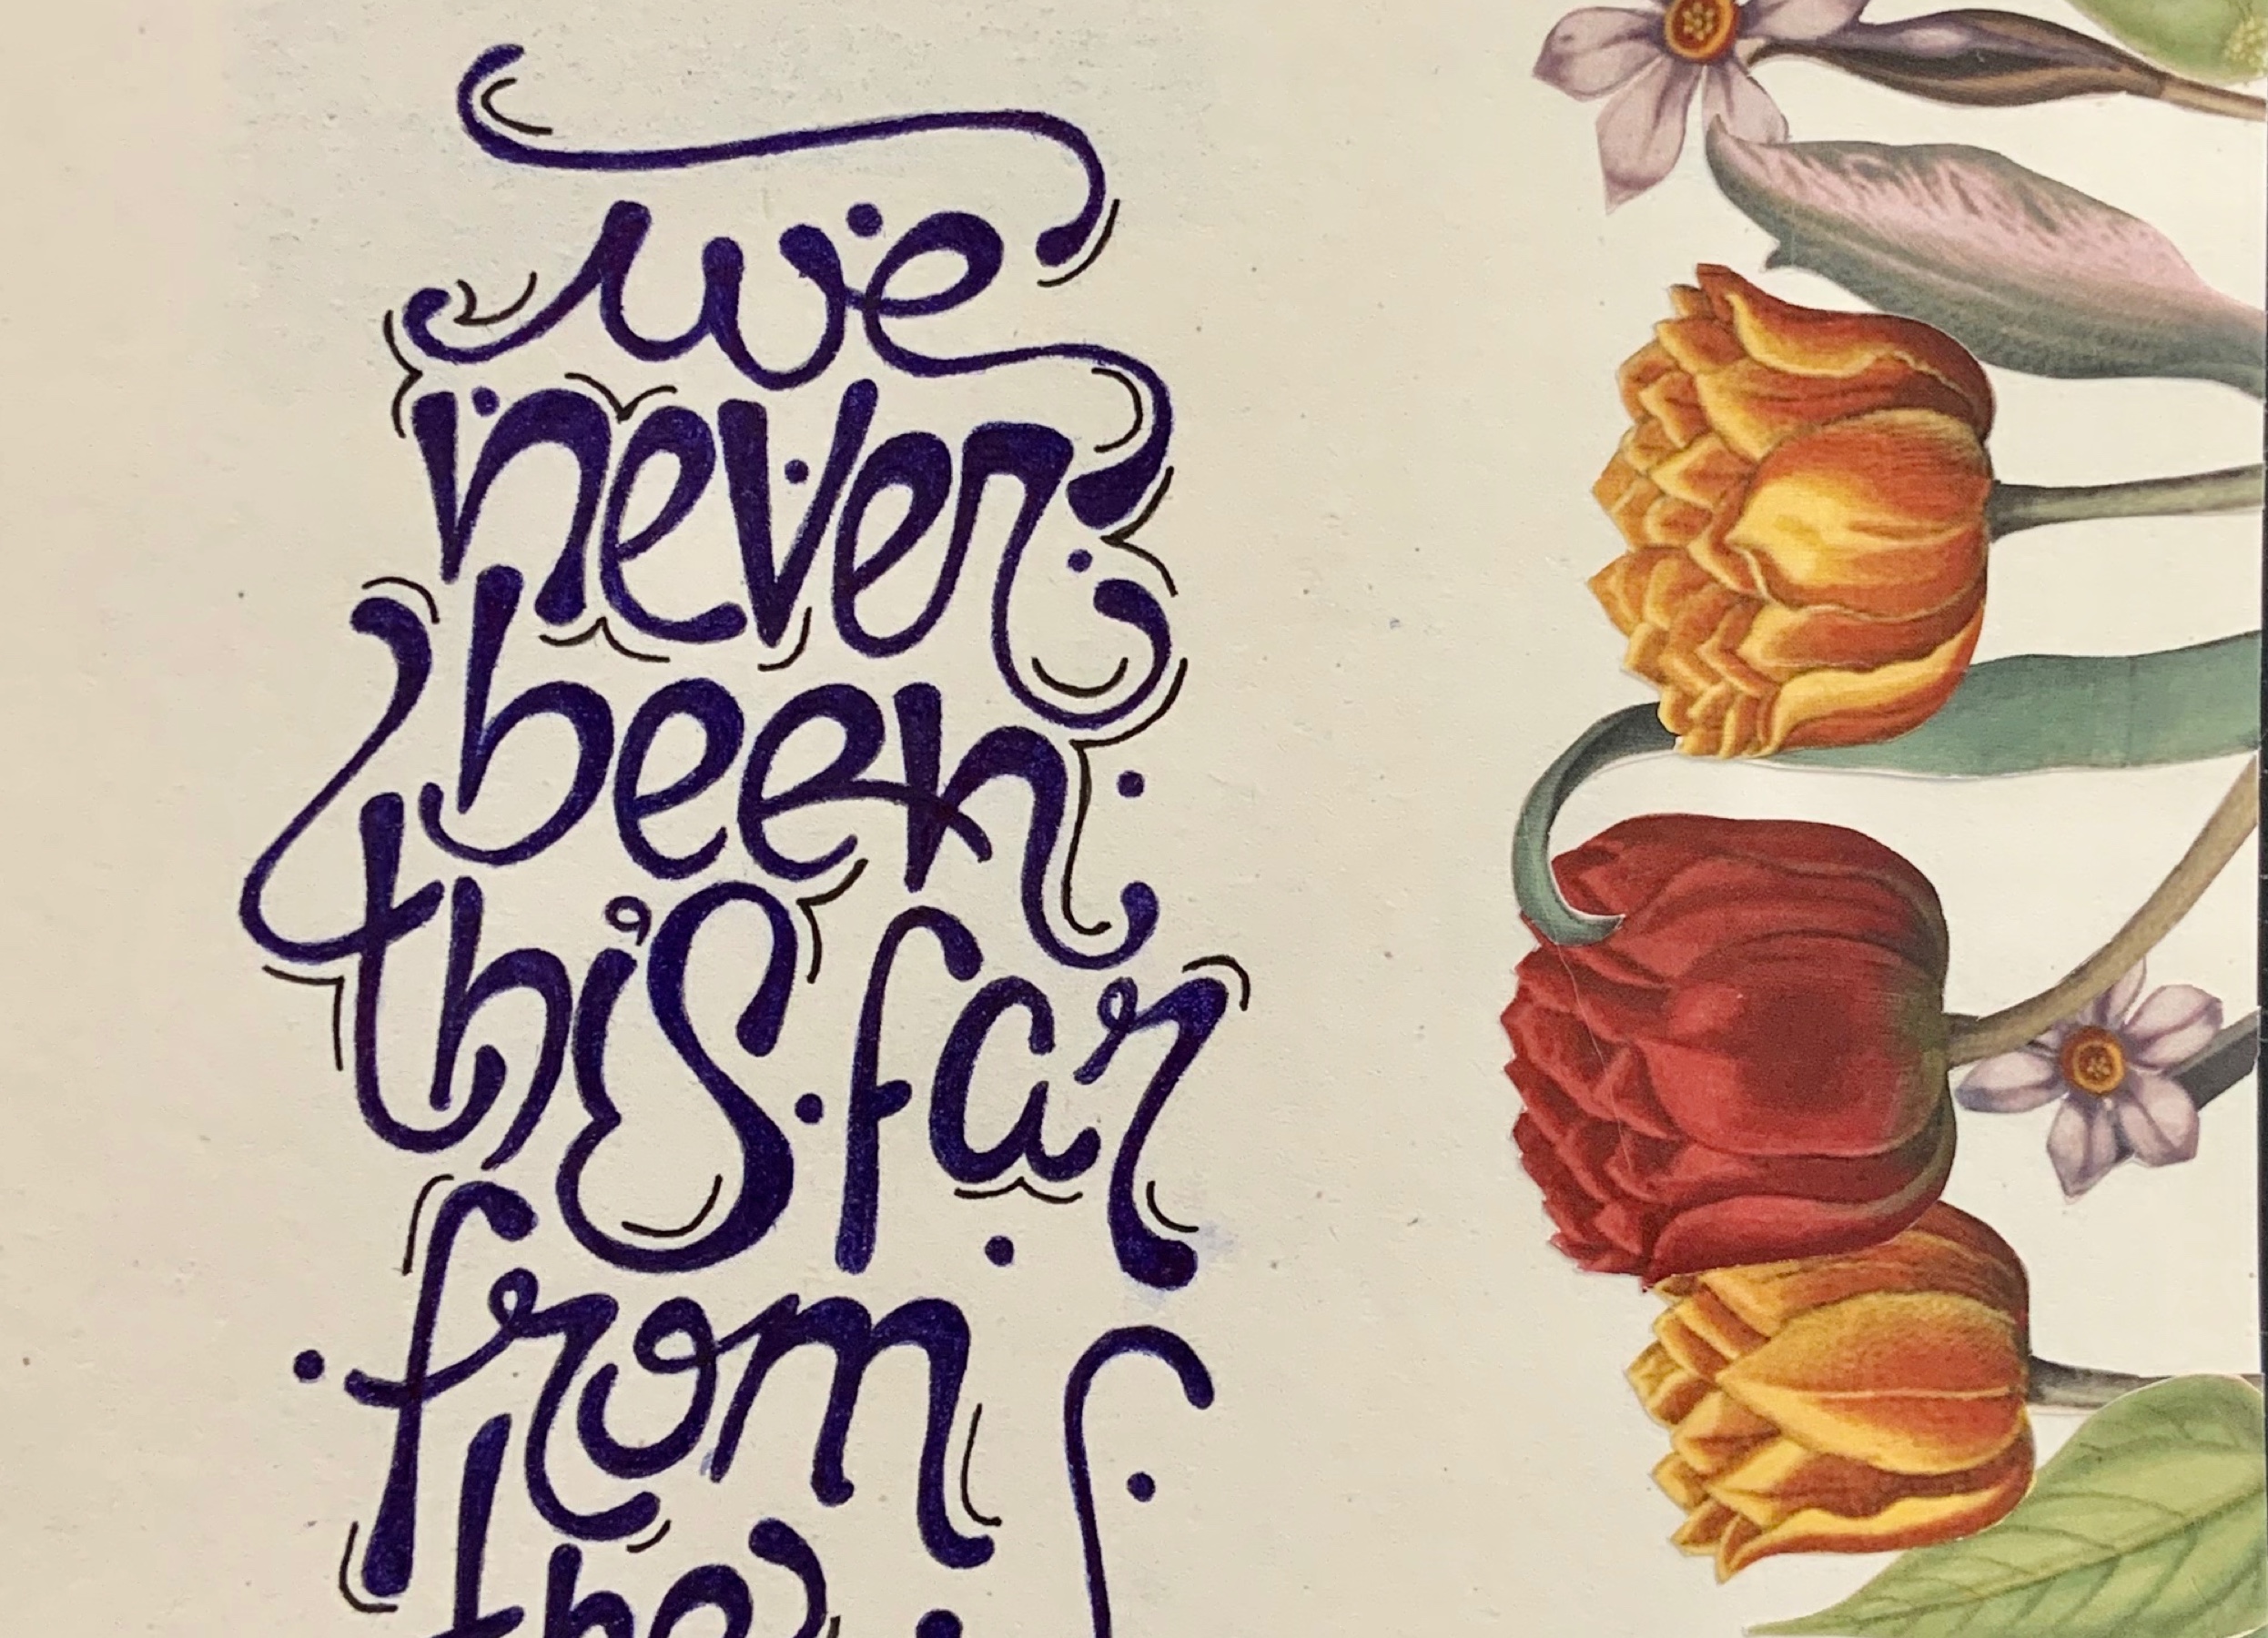 we
never
been
this far
from
the